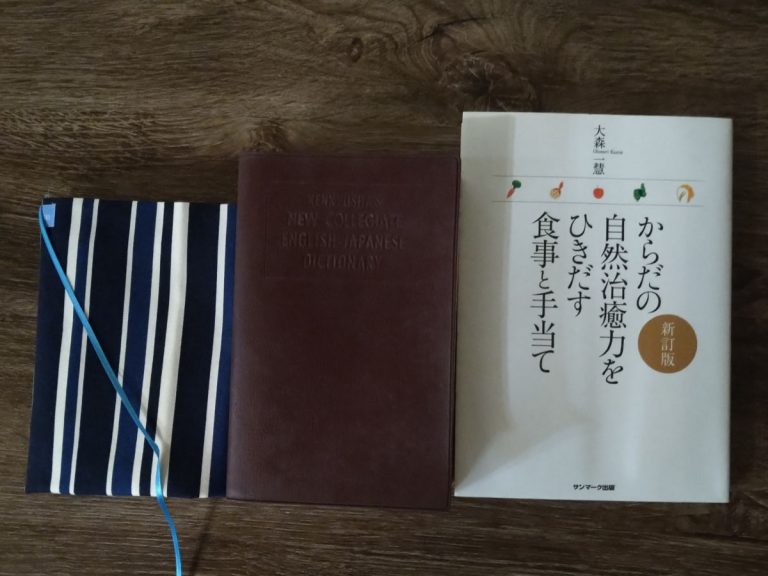 KENKYUSHA'S
NEW COLLEGIATE
ENGLISH-JAPANESE
DICTIONARY
大森一慧
Ohmori Kazue
からだの
自然治癒力を
ひきだす
食事と手当て
新訂版
サンマーク出版